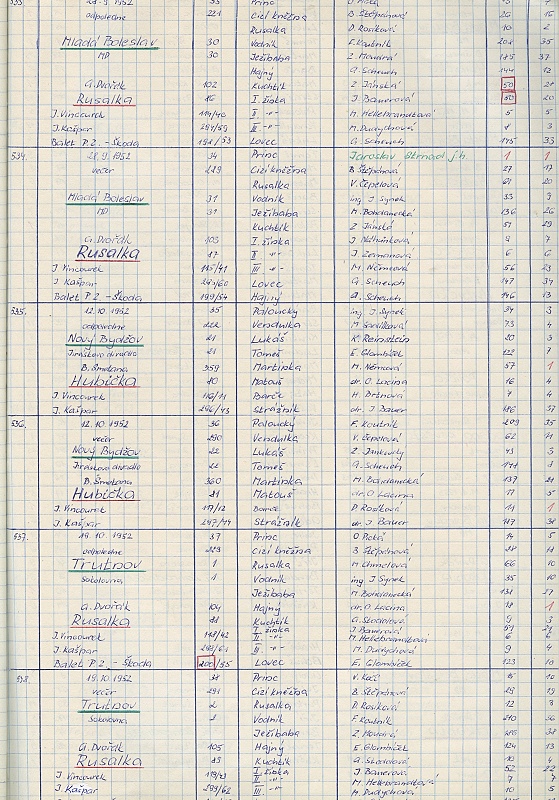 533. 28.9.1952 33 Princ
odpoledne 221 Cizí kněžna B. Štěpánová 26 16
Rusalka D. Rosíková 10 2
Mladá Boleslav 30 Vodník F. Koutník 208 35
MD 30 Ježibaba Z. Houdná 185 37
Hajný A. Scheuch 144 12
A. Dvořák 102 Kuchtík Z. Jánská 50 28
Rusalka 16 I. žínka J. Bauerová 50 20
J. Vincourek 114/40 II. -"- M. Hellebrandtová 5 5
J. Kašpar 244/59 III. -"- M. Dudychová 8 3
Balet P.Z. - Škoda 198/53 Lovec G. Scheuch 145 33
534. 28.9.1952 34 Princ Jaroslav Strnad j.h. 1 1
večer 229 Cizí kněžna B. Štěpánová 27 17
Rusalka V. Čepelová 61 20
Mladá Boleslav 31 Vodník ing J. Synek 33 9
MD 31 Ježibaba M. Bohdanecká 136 26
Kuchtík Z. Jánská 51 29
A. Dvořák 103 I. žínka
Rusalka 17 II. -"- J. Zemanová 6 6
J. Vincourek 115/41 III. -"- M. Němcová 56 23
J. Kašpar 245/60 Lovec G. Scheuch 147 34
Balet P.Z. - Škoda 199/54 Hajný A. Scheuch 146 13
535. 12.10.1952 35 Paloucký ing J. Synek 34 3
odpoledne 222 Vendulka M. 73
Nový Bydžov 21 Lukáš K. Reinstein 20 3
Jiráskovo divadlo 21 Tomeš E. Glombíček 122 7
B. Smetana 359 Martinka M. Němcová 57 1
Hubička 20 Matouš dr. O. Lucina 16
J. Vincourek 116/11 Barče H. Brtnová 7 4
J. Kašpar 246/43 Strážník dr. J. Bauer 186 37
536. 12.10.1952 36 Paloucký F. Koutník 209 35
večer 290 Vendulka V. Čepelová 62 11
Nový Bydžov 22 Lukáš Z. Jankovdy 43 3
Jiráskovo divadlo 22 Tomeš A. Scheuch 147 8
B. Smetana 360 Martinka M. Bohdanecká 137 21
Hubička 21 Matouš dr. O. Lucina 17 5
J. Vincourek 117/12 Barče D. Rosíková 11 1
J. Kašpar 247/44 Strážník dr. J. Bauer 187 38
537. 19.10.1952 37 Princ O. 14 5
odpoledne 223 Cizí kněžna B. Štěpánová 28 18
Trutnov 1 Rusalka M. Chmelová 66 10
Sokolovna 1 Vodník ing J. Synek 35 10
Ježibaba M. Bohdanecká 138 27
A. Dvořák 104 Hajný dr. O. Lucina 18 1
Rusalka 18 Kuchtík A. Skodolová 9 3
I. žínka J. Bauerová 51 21
J. Vincourek 118/42 II. -"- M. Hellebrandtová 6 6
J. Kašpar 248/61 III. -"- M. Dudychová 9 4
Balet P.Z. - Škoda 200/55 Lovec E. Glombíček 123 10
538. 19.10.1952 38 Princ V. Kočí 15 10
večer 291 Cizí kněžna B. Štěpánová 29 19
Trutnov 2 Rusalka D. Rosíková 12 3
Sokolovna 2 Vodník F. Koutník 210 36
Ježibaba Z. Houdná 186 38
A. Dvořák 105 Hajný E. Glombíček 124 13
Rusalka 19 Kuchtík A. Skodolová 10 4
I. žínka J. Bauerová 52 22
J. Vincourek 119/43 II. -"- M. Hellebrandtová 7
J. Kašpar 249/62 III. -"- M. Dudychová 10 5